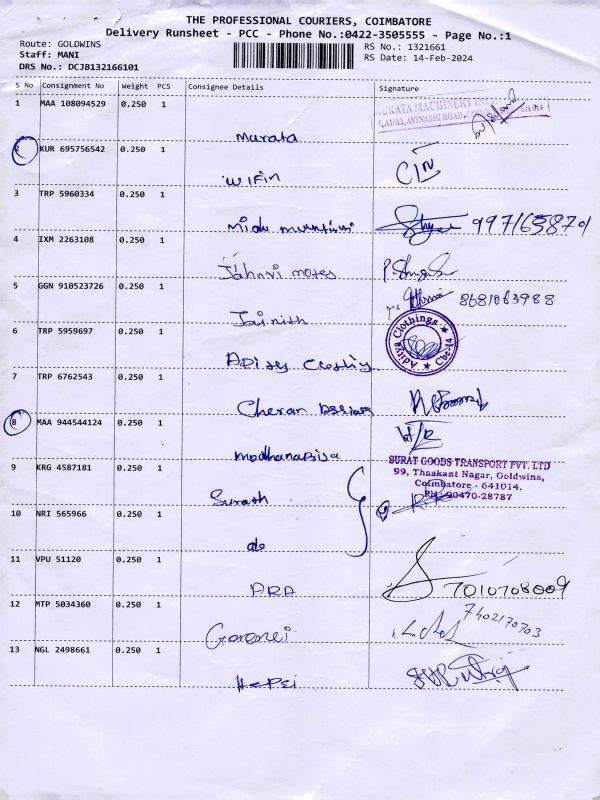 THE PROFESSIONAL COURIERS, COIMBATORE
Delivery Runsheet - PCC - Phone No.:0422-3505555 - Page No.:1
Route: GOLDWINS RS No.: 1321661
Staff: MANI RS Date: 14-Feb-2024
DRS No.: DCJB132166101
S No Consignment No Weight PCS Consignee Details Signature
1 MAA 108094529 0.250 1
Murata
2 KUR 695756542 0.250 1
WIFin
3 TRP 5960334 0.250 1
997165870
4 IXM 2263108 0.250 1
Jahnvi motes
5 GGN 910523726 0.250 1
8681063988
Jainith
6 TRP 5959697 0.250 1
Aditya Clothings
Cbe-14
7 TRP 6762543 0.250 1
Cheran
8 MAA 944544124 0.250 1
SURAT GOODS TRANSPORT PVT. LTD
99, Thaskant Nagar, Goldwins,
Coimbatore - 641014.
PH: 90470-28787
9 KRG 4587181 0.250 1
Surash
10 NRI 565966 0.250 1
do
11 VPU 51120 0.250 1
7010708009
ARA
12 MTP 5034360 0.250 1
7402170703
13 NGL 2498661 0.250 1
HePSi